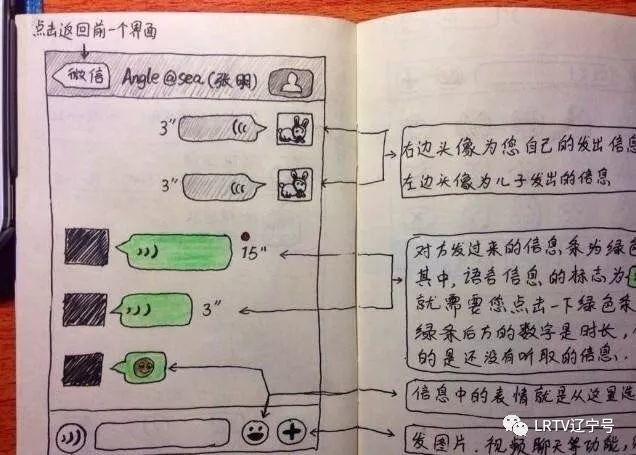 点击返回前一个界面
微信 Angle@sea(张明)
3"
3"
右边头像为您自己的发出信息
左边头像为儿子发出的信息
15"
3"
对方发过来的信息条为绿色
其中,语音信息的标志为
就需要您点击一下绿色条
绿条后方的数字是时长,
的是还没有听取的信息.
信息中的表情就是从这里选
发图片、视频聊天等功能,
LRTV辽宁号